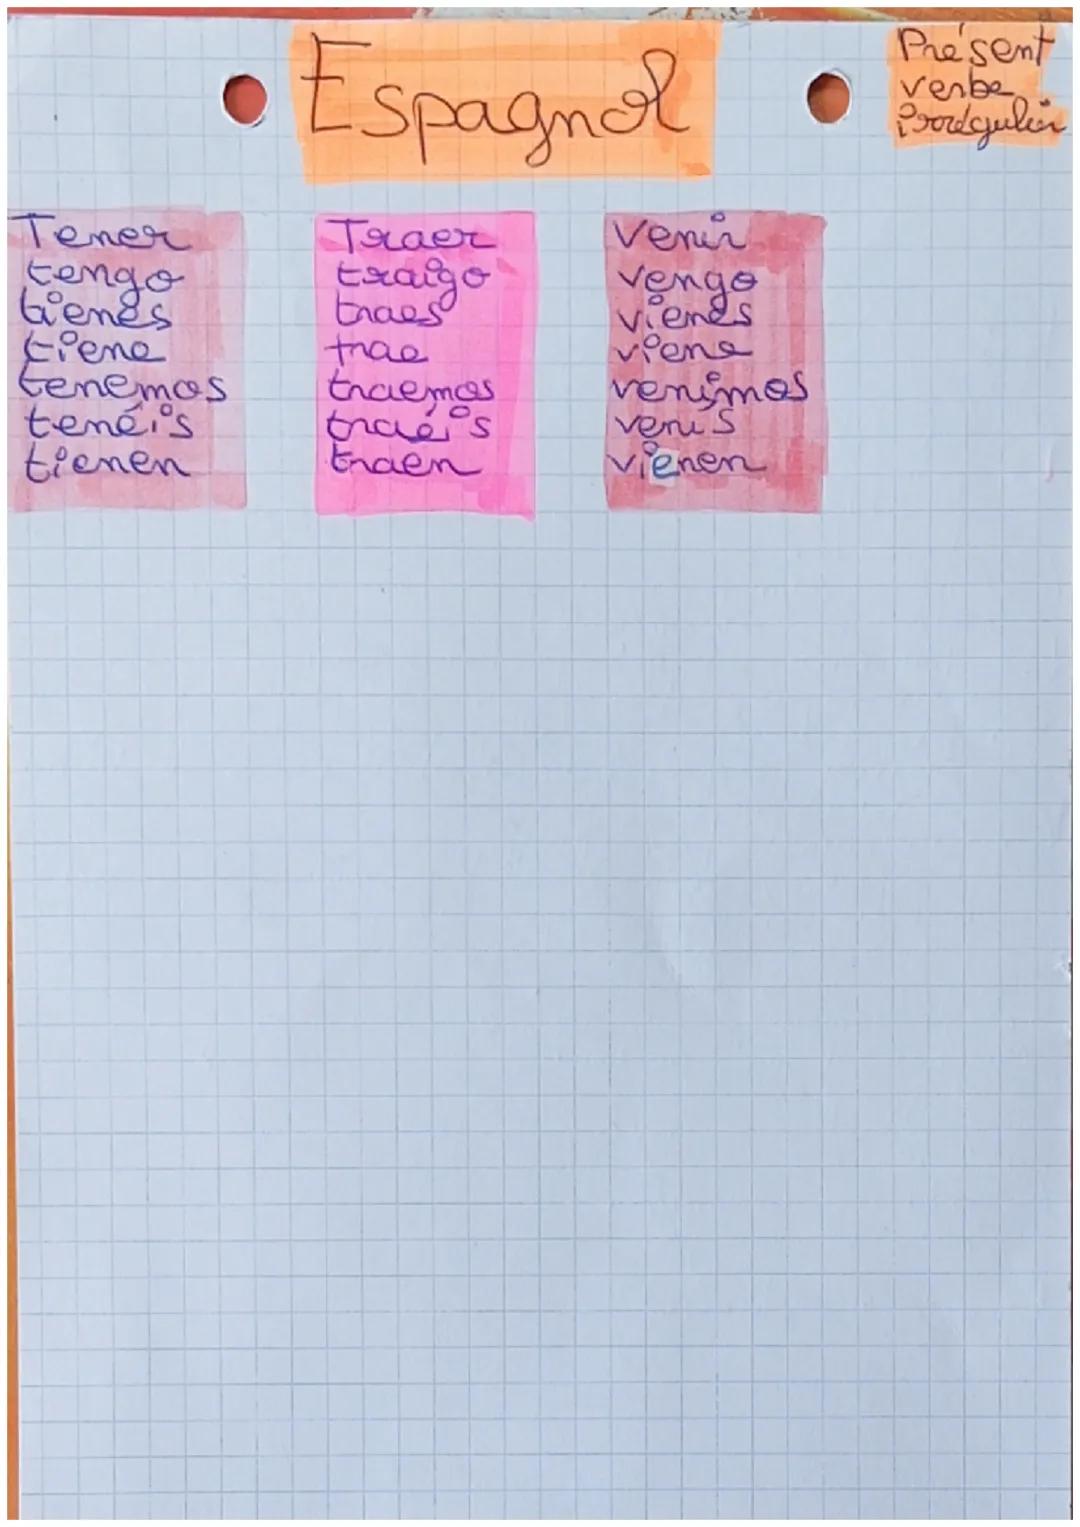 Espagnol
Présent
verbe
irrégulier
Tener
tengo
tienes
tiene
tenemos
tenéis
tienen
Traer
traigo
traes
trae
traemos
traéis
traen
Venir
vengo
vienes
viene
venimos
venis
vienen